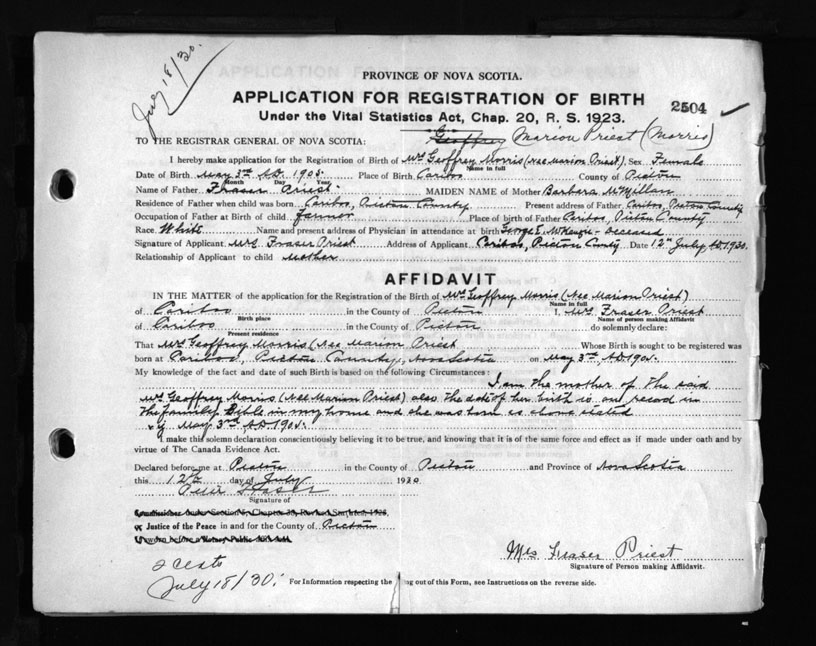 July 18/30.
PROVINCE OF NOVA SCOTIA.
APPLICATION FOR REGISTRATION OF BIRTH
2504
Under the Vital Statistics Act, Chap. 20, R. S. 1923.
Geoffrey Marion Priest (Morris)
TO THE REGISTRAR GENERAL OF NOVA SCOTIA:
I hereby make application for the Registration of Birth of Mrs Geoffrey Morris (nee Marion Priest). Sex Female
Name in full
Date of Birth May 3rd A.D. 1905. Place of Birth Cariboo County of Pictou
Month Day Year
Name of Father Fraser Priest. MAIDEN NAME of Mother Barbara McMillan
Residence of Father when child was born Cariboo, Pictou County Present address of Father Cariboo, Pictou County
Occupation of Father at Birth of child farmer Place of birth of Father Cariboo, Pictou County
Race White Name and present address of Physician in attendance at birth George E. McKenzie - Deceased
Signature of Applicant Mrs Fraser Priest Address of Applicant Cariboo, Pictou County Date 12th July A.D. 1930.
Relationship of Applicant to child Mother
AFFIDAVIT
IN THE MATTER of the application for the Registration of the Birth of Mrs Geoffrey Morris (Nee Marion Priest)
Name in full
of Cariboo in the County of Pictou I, Mrs Fraser Priest
Birth place Name of person making Affidavit
of Cariboo in the County of Pictou do solemnly declare:
Present residence
That Mrs Geoffrey Morris (Nee Marion Priest Whose Birth is sought to be registered was
born at Cariboo, Pictou County, Nova Scotia on May 3rd A.D. 1905.
My knowledge of the fact and date of such Birth is based on the following Circumstances:
I am the mother of the said
Mrs Geoffrey Morris (Nee Marion Priest) also the date of her birth is on record in
the family Bible in my home and she was born as above stated
May 3rd A.D. 1905.
make this solemn declaration conscientiously believing it to be true, and knowing that it is of the same force and effect as if made under oath and by
virtue of The Canada Evidence Act.
Declared before me at Pictou in the County of Pictou and Province of Nova Scotia
this 12th day of July 1930
Peter Fraser
Signature of
or Justice of the Peace in and for the County of Pictou
Mrs Fraser Priest
Signature of Person making Affidavit.
July 18/30.
For Information respecting the ing out of this Form, see Instructions on the reverse side.